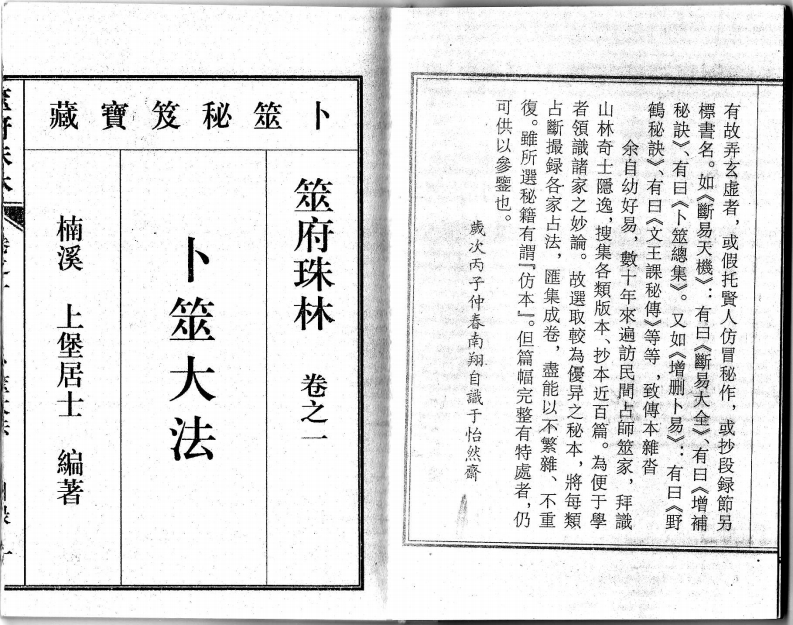 有故弄玄虛者，或假托賢人仿冒秘作，或抄段録節另
標書名。如《斷易天機》：有曰《斷易大全》、有曰《增補
秘訣》、有曰《卜筮總集》。又如《增删卜易》：有曰《野
鶴秘訣》、有曰《文王課秘傳》等等，致傳本雜沓
余自幼好易，數十年來遍訪民間占師筮家，拜識
山林奇士隱逸，搜集各類版本、抄本近百篇。為便于學
者領識諸家之妙論。故選取較為優异之秘本，將每類
占斷撮録各家占法，匯集成卷，盡能以不繁雜、不重
復。雖所選秘籍有謂『仿本』。但篇幅完整有特處者，仍
可供以參鑒也。
歲次丙子仲春南翔自識于怡然齋
卜筮秘笈寶藏
筮府珠林 卷之一
卜筮大法
楠溪 上堡居士 編著